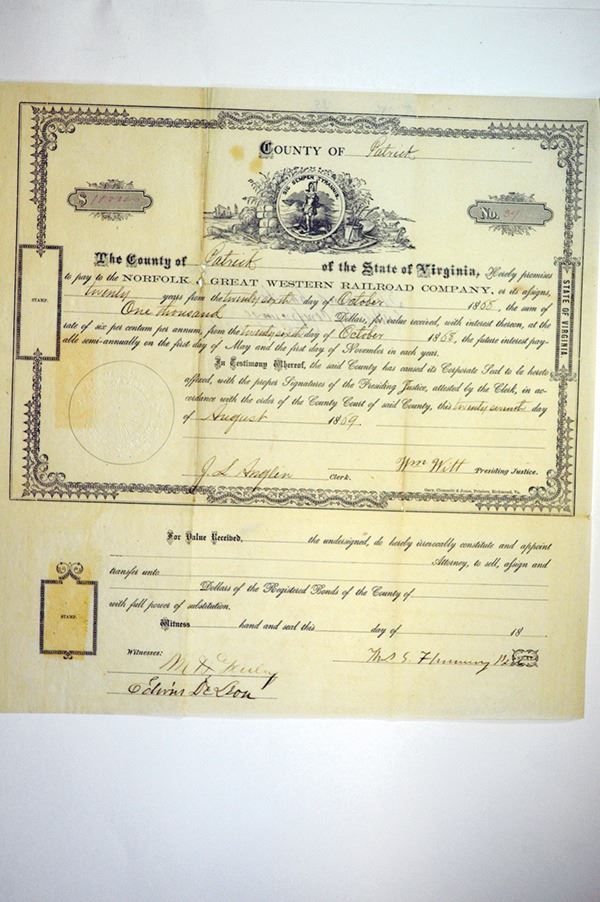 COUNTY OF Patrick
SIC SEMPER TYRANNIS
$ 1000
No.
The County of Patrick of the State of Virginia, Hereby promises
to pay to the NORFOLK & GREAT WESTERN RAILROAD COMPANY, or its assigns,
twenty years from the twenty sixth day of October 1868, the sum of
One thousand Dollars, for value received, with interest thereon, at the
rate of six per centum per annum, from the twenty sixth day of October 1868, the future interest pay-
able semi-annually on the first day of May and the first day of November in each year.
In Testimony Whereof, the said County has caused its Corporate Seal to be hereto
affixed, with the proper Signatures of the Presiding Justice, attested by the Clerk, in ac-
cordance with the order of the County Court of said County, this twenty seventh day
of August 1869
J. S. Anglin Clerk. Wm Witt Presiding Justice.
Gary, Clemmitt & Jones, Printers, Richmond, Va.
STAMP.
STATE OF VIRGINIA
For Value Received, the undersigned, do hereby irrevocably constitute and appoint
Attorney, to sell, assign and
transfer unto
Dollars of the Registered Bonds of the County of
with full power of substitution.
Witness hand and seal this day of 18
STAMP.
Witnesses:
Edwin De Leon